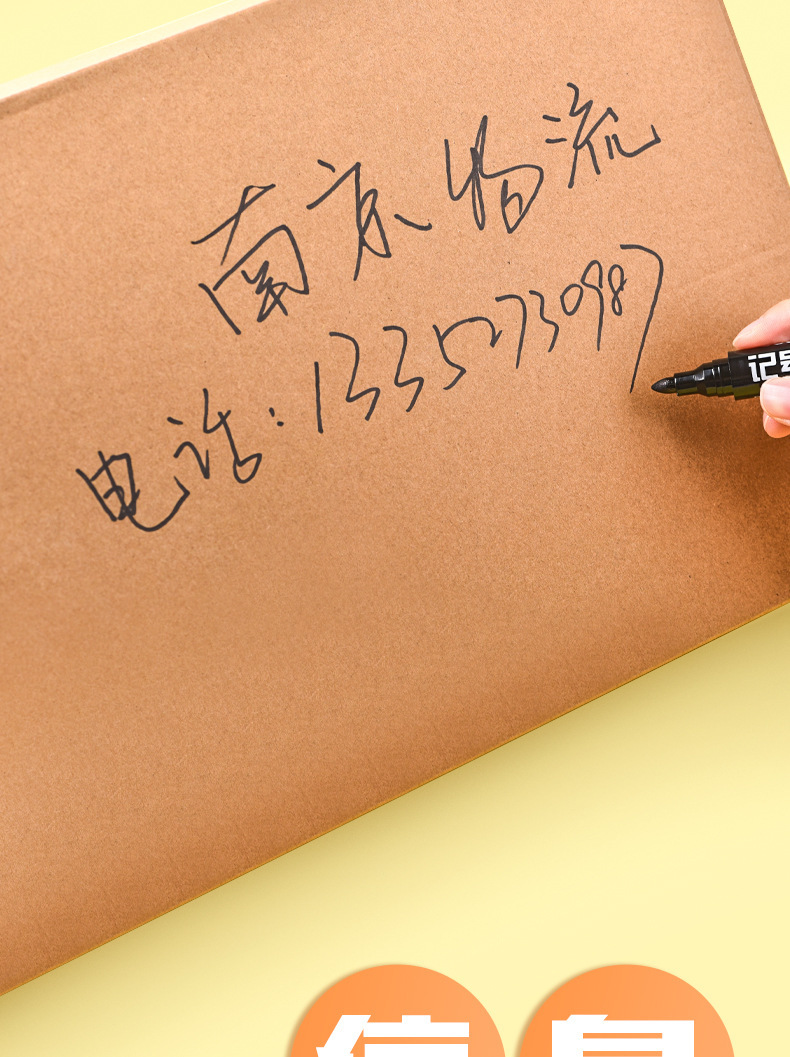 南京物流
电话:13352730987
记号
信息